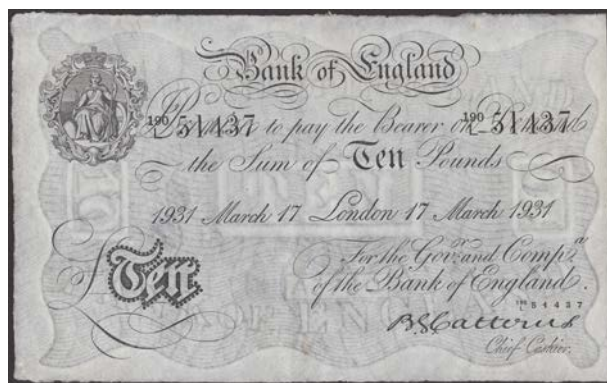 Bank of England
190/L 51437 to pay the Bearer on Demand 190/L 51437
the Sum of Ten Pounds
1931 March 17 London 17 March 1931
For the Govr. and Compa.
of the Bank of England.
£Ten
190/L 51437
B.G. Catterns
Chief Cashier.